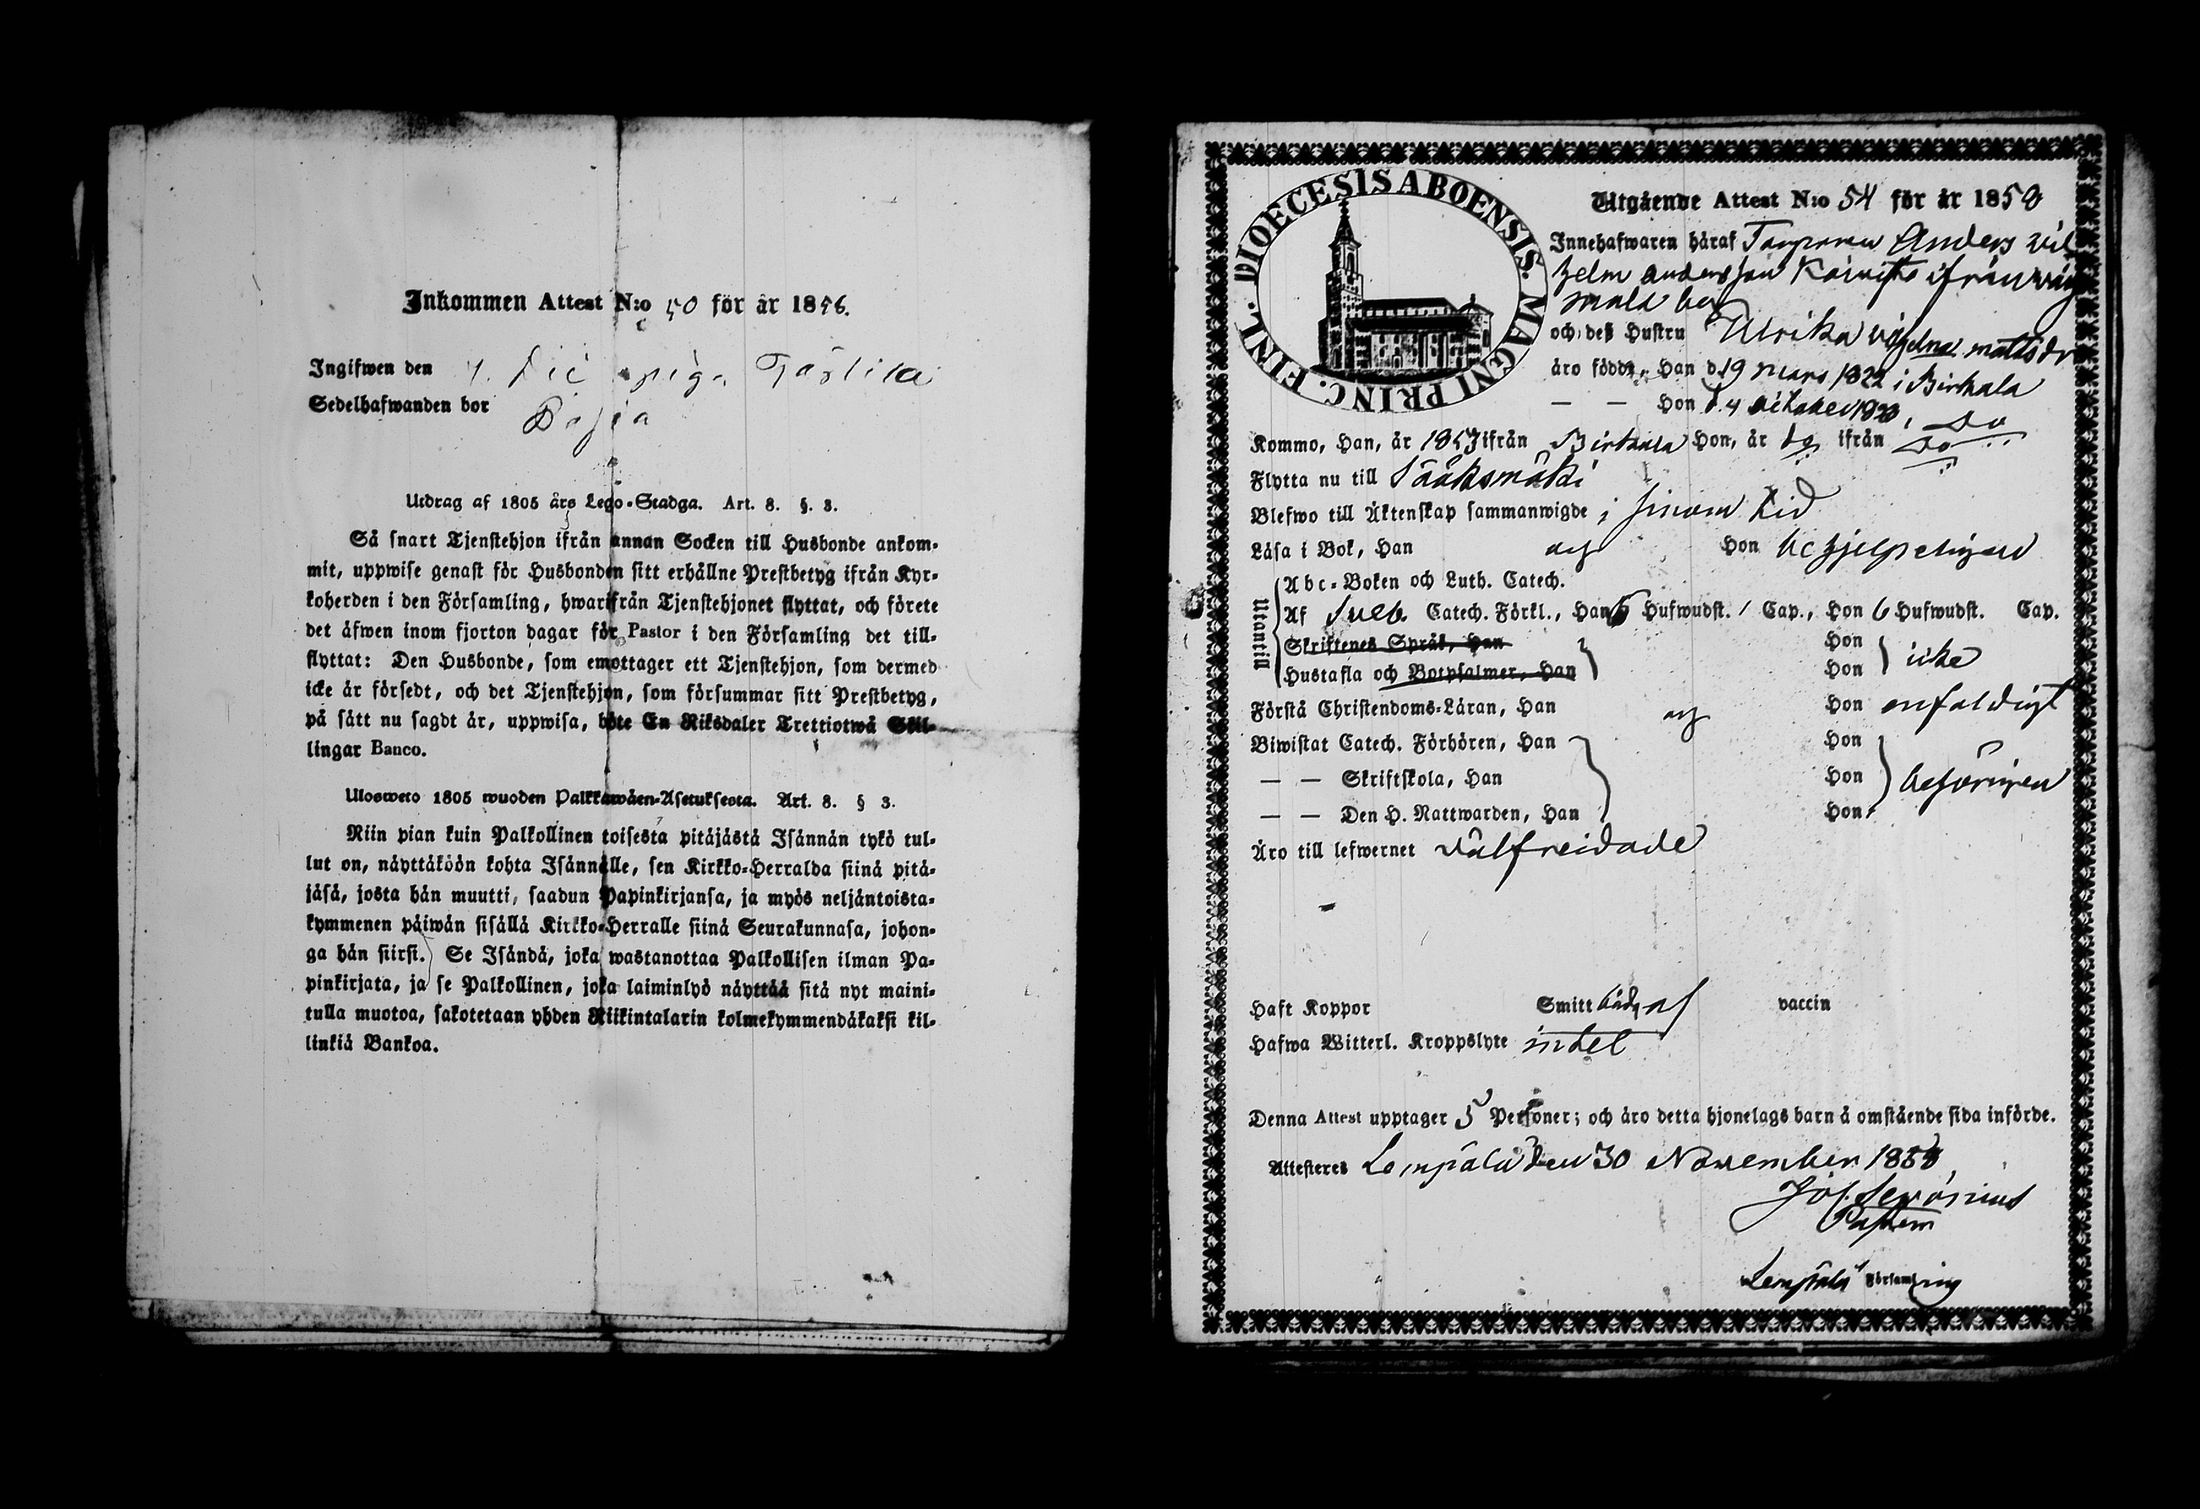 Inkommen Attest N:o 50 för år 1856.
Ingifwen den
Sedelhafwanden bor
Utdrag af 1805 års Lego-Stadga. Art. 8. §. 3.
Så snart Tjenstehjon ifrån annan Socken till Husbonde ankom-
mit, uppwise genast för Husbonden sitt erhållne Prestbetyg ifrån Kyr-
koherden i den Församling, hwarifrån Tjenstehjonet flyttat, och förete
det äfwen inom fjorton dagar för Pastor i den Församling det till-
flyttat: Den Husbonde, som emottager ett Tjenstehjon, som dermed
icke är försedt, och det Tjenstehjon, som försummar sitt Prestbetyg,
på sätt nu sagdt är, uppwisa, böte En Riksdaler Trettiotwå Skil-
lingar Banco.
Ulosweto 1805 wuoden Palkkawäen-Asetuksesta. Art. 8. § 3.
Niin pian kuin Palkollinen toisesta pitäjästä Isännän tykö tul-
lut on, näyttäköön kohta Isännälle, sen Kirkko-Herralda siinä pitä-
jäsä, josta hän muutti, saadun Papinkirjansa, ja myös neljäntoista-
kymmenen päiwän sisällä Kirkko-Herralle siinä Seurakunnasa, johon-
ga hän siirsi. Se Isändä, joka wastanottaa Palkollisen ilman Pa-
pinkirjata, ja se Palkollinen, joka laiminlyö näyttää sitä nyt maini-
tulla muotoa, sakotetaan yhden Riikintalarin kolmekymmendäkaksi kil-
linkiä Bankoa.
DIOECESIS ABOENSIS. MAGNI PRINC. FINL.
Utgående Attest N:o 54 för år 1858
Innehafwaren häraf Anders Wil
helm Andersson ifrån
och deß Hustru Ulrika Matts dr
äro födde, Han d. 19 Mars 1822 i Birkala
— — Hon d. 4 October 1823, Do
Kommo, Han, år 1853 ifrån Birkala Hon, år do ifrån Do
Flytta nu till Sääksmäki
Blefwo till Äktenskap sammanwigde i sinom tid
Läsa i Bok, Han Hon behjelpeligen
Utantill
Abc-Boken och Luth. Catech.
Af Sveb. Catech. Förkl., Han 5 Hufwudst. 1 Cap., Hon 6 Hufwudst. Cap.
Skriftenes Språk, Han Hon
Hustafla och Botpsalmer, Han Hon icke
Förstå Christendoms-Läran, Han Hon enfaldigt
Biwistat Catech. Förhören, Han Hon
— — Skriftskola, Han Hon behörigen
— — Den H. Nattwarden, Han Hon
Äro till lefwernet välfreidade
Haft Koppor Smitt både af vaccin
Hafwa Witterl. Kroppslyte intet
Denna Attest upptager 5 Personer; och äro detta hjonelags barn å omstående sida införde.
Attesteras Lempälä den 30 November 1858
Pastem
Lempälä Församling